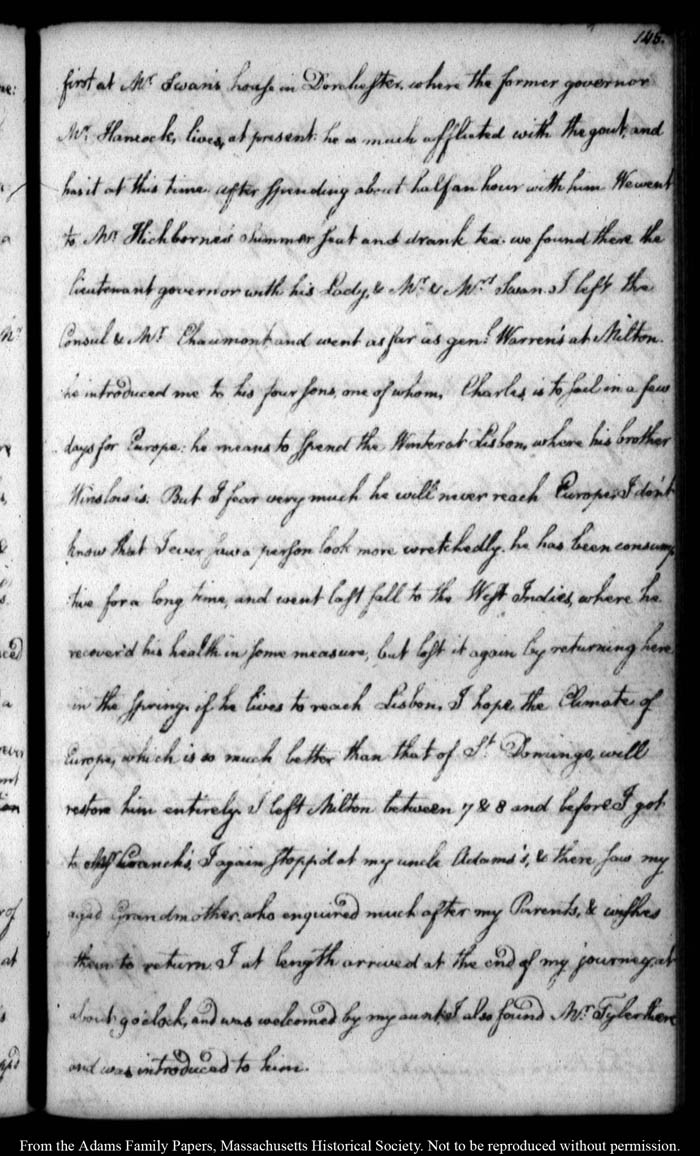 145.
first at Mr Swan's house in Dorchester, where the former governor
Mr. Hancock, lives, at present: he is much afflicted with the gout, and
has it at this time. after spending about half an hour with him We went
to Mr. Hichborne's Summer seat and drank tea. we found there the
lieutenant governor with his Lady, & Mr. & Mrs. Swan. I left the
Consul & Mr. Chaumont and went as far as genl. Warren's at Milton.
he introduced me to his four sons, one of whom, Charles, is to sail in a few
days for Europe: he means to spend the Winter at Lisbon, where his brother
Winslow is. But I fear very much he will never reach Europe, I don't
know that I ever saw a person look more wretchedly. he has been consump
tive for a long time, and went last fall to the West Indies, where he
recover'd his health in some measure, but lost it again by returning here
in the spring. if he lives to reach Lisbon, I hope, the Climate of
Europe, which is so much better than that of St. Domingo, will
restore him entirely. I left Milton between 7 & 8 and before I got
to Cranch's, I again stopp'd at my uncle Adams's, & there saw my
aged Grandmother, who enquired much after my Parents, & wishes
them to return. I at length arrived at the end of my journey, at
about 9 o'clock, and was welcomed by my aunt. I also found Mr. Tyler there
and was introduced to him.
From the Adams Family Papers, Massachusetts Historical Society. Not to be reproduced without permission.